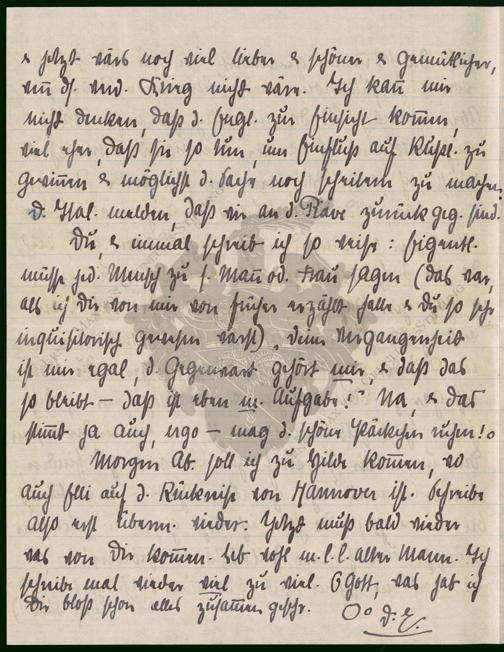 & jetzt wärs noch viel lieber & schöner & gemütlicher,
wenn ds. Krieg nicht wäre. Ich kann mir
nicht denken, daß d. Engl. zur Einsicht kommen,
viel eher, daß sie so tun, um Einfluß auf zu
gewinnen & möglichst d. Sache noch zu machen,
D. Ital. melden, daß wir an d. Piave zurückgeg. sind.
Du, & einmal schrieb ich so weise: Eigentl.
müsse jed. Mensch zu s. Mann od. Frau sagen (das war,
als ich Dir von mir von früher erzählt hatte & Du so sehr
inquisitorisch gewesen warst), deine Vergangenheit
ist mir egal, d. Gegenwart gehört mir, & daß das
so bleibt – daß ist eben m. Aufgabe!" Na, & das
stimmt ja auch, ergo – mag d. schöne Päckchen ruhen!
Morgen Ab. soll ich zu Hilde kommen, wo
auch Elli auf d. Rückreise von Hannover ist. Schreibe
also erst überm. wieder. Jetzt muß bald wieder
was von Dir kommen. Leb wohl m. l. l. alter Mann. Ich
schreibe mal wieder viel zu viel. O Gott, was hab ich
Dir bloß schon alles zusammen geschr.